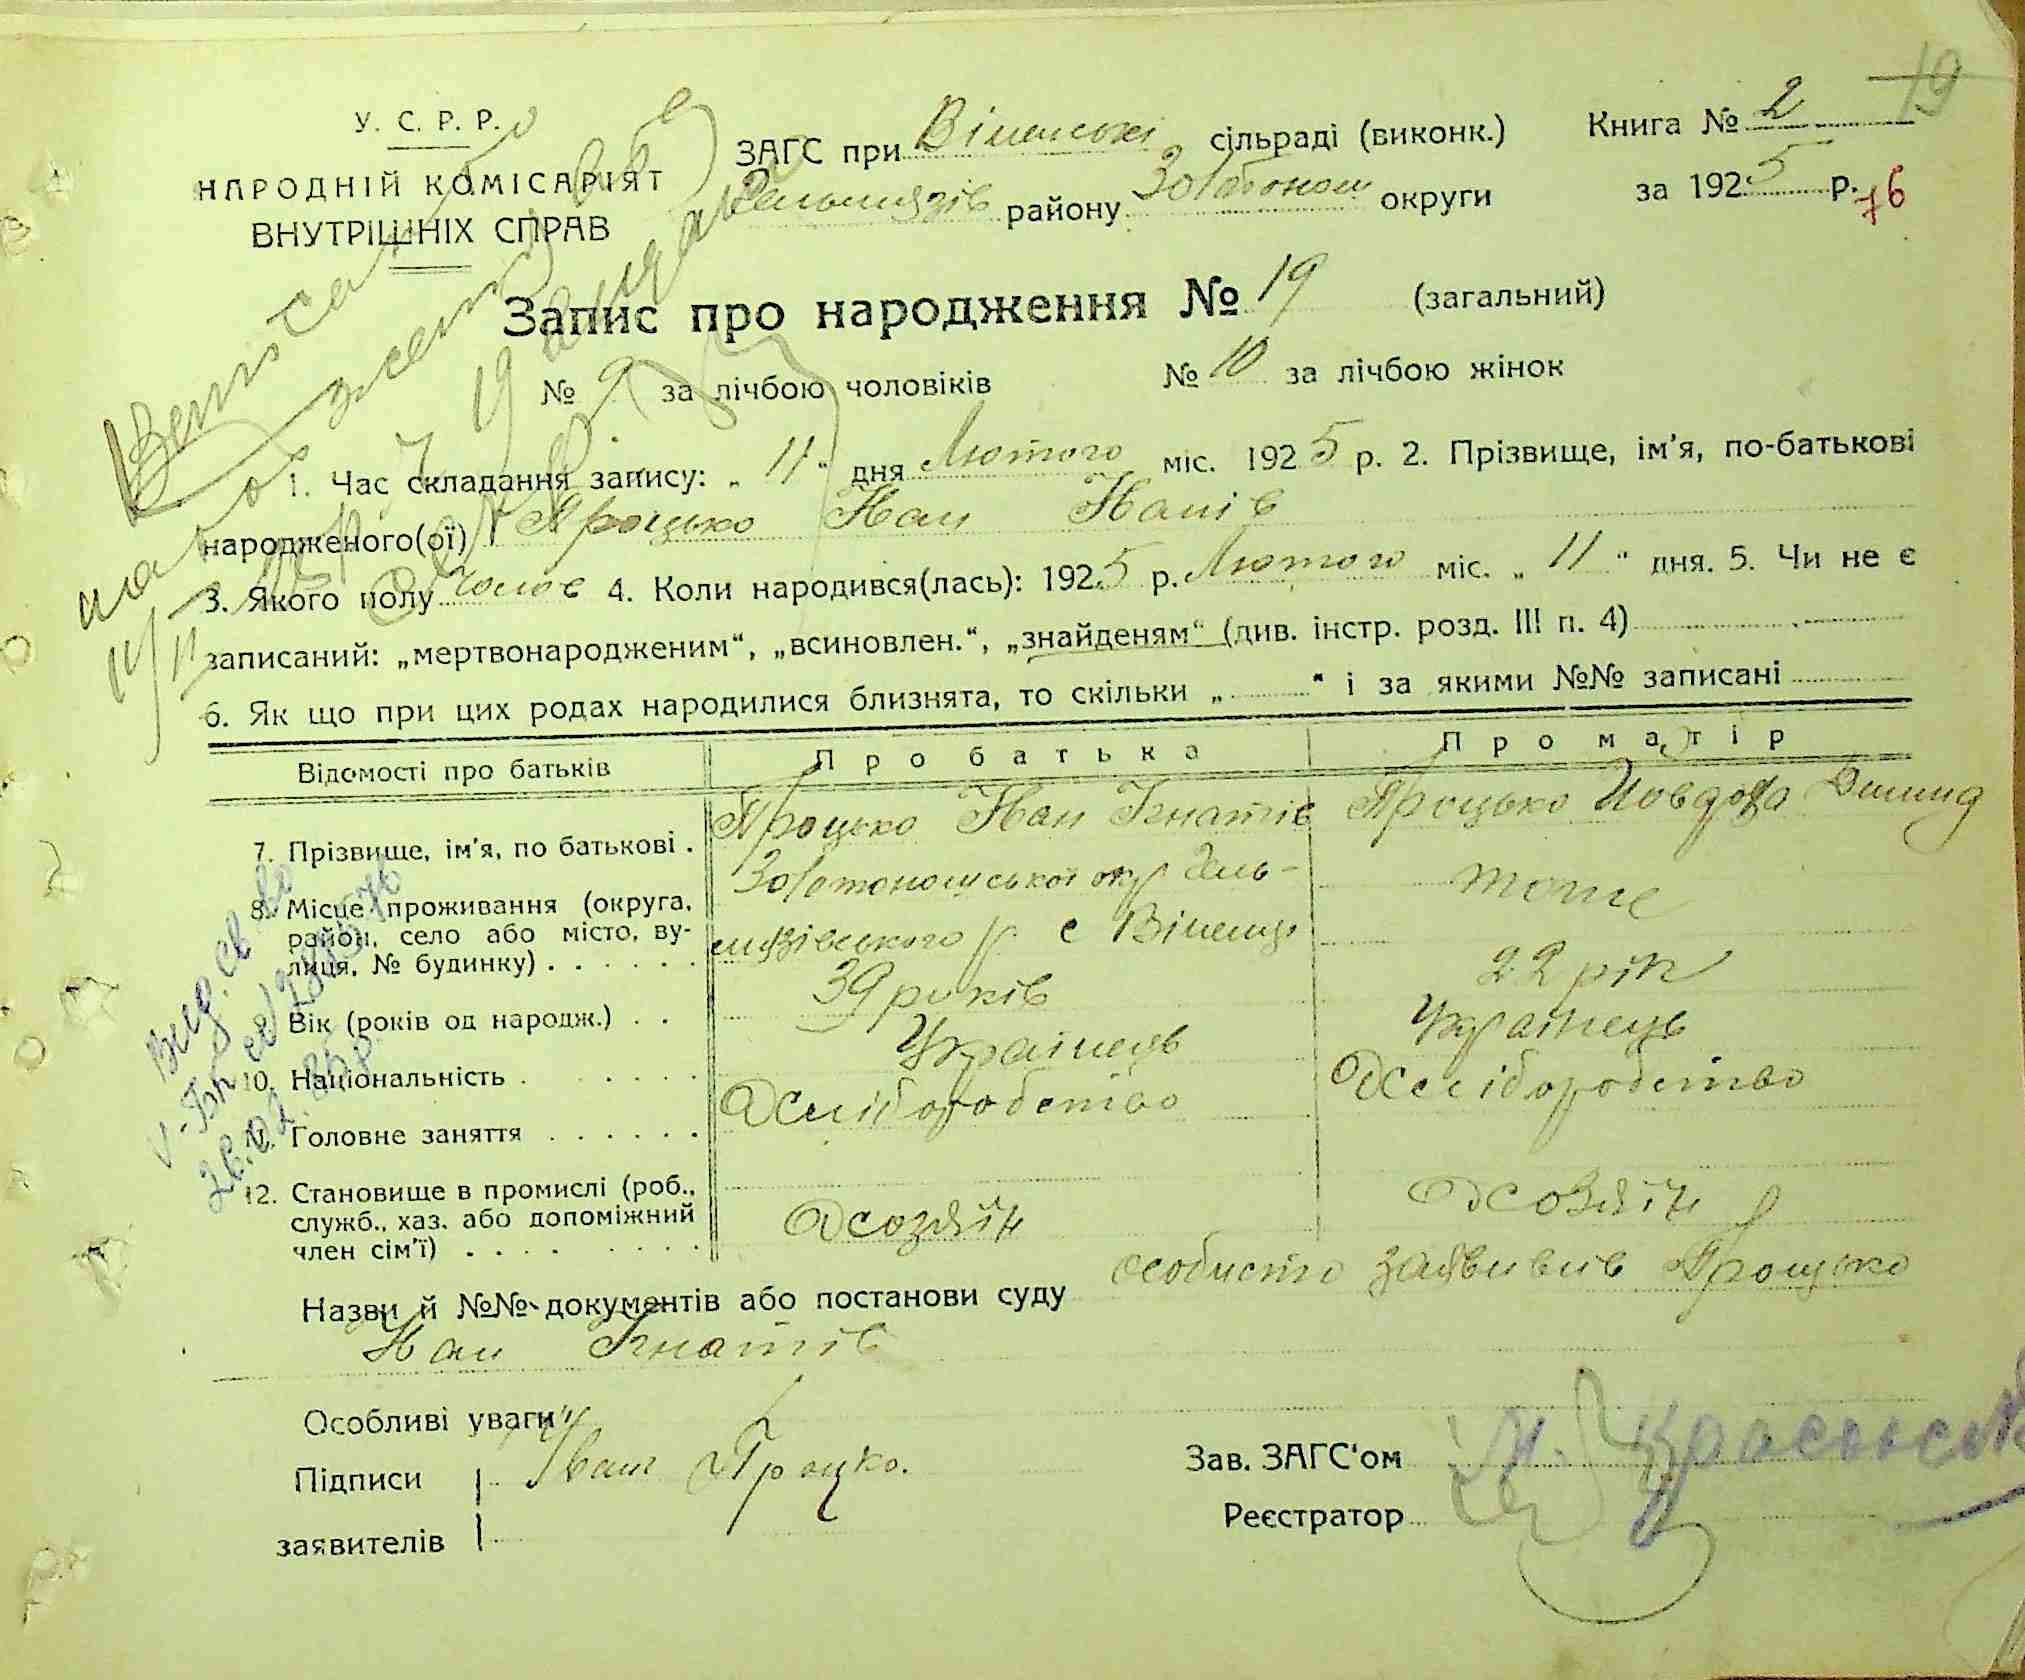 У. С. Р. Р.
НАРОДНІЙ КОМІСАРІЯТ
ВНУТРІШНІХ СПРАВ
ЗАГС при Віненські сільраді (виконк.)
Гельмязів району Золотонош округи
Книга № 2
за 1925 р.
19
76
Запис про народження № 19 (загальний)
№ 9 за лічбою чоловіків № 10 за лічбою жінок
1. Час складання запису: „ 11 “ дня Лютого міс. 1925 р. 2. Прізвище, ім'я, по-батькові
народженого(ої) Яроцько Іван Іванів
3. Якого полу Чолов 4. Коли народився(лась): 1925 р. Лютого міс. „ 11 “ дня. 5. Чи не є
записаний: „мертвонародженим“, „всиновлен.“, „знайденям“ (див. інстр. розд. III п. 4)
6. Як що при цих родах народилися близнята, то скільки „ “ і за якими №№ записані
Відомості про батьків Про батька Про матір
7. Прізвище, ім'я, по батькові . Яроцько Іван Ігнатів Яроцько Йовдоха
8. Місце проживання (округа, район, село або місто, вулиця, № будинку) . . . . . . Золотоношської окр Гельмязівського р с Віненці тоже
9. Вік (років од народж.) . . 39 років 22 рік
10. Національність . . . . . . Українець Українець
11. Головне заняття . . . . . . Хліборобство Хліборобство
12. Становище в промислі (роб., служб., хаз. або допоміжний член сім'ї) . . . . . . . . Хозяїн Хозяїн
Назви й №№ документів або постанови суду особисто заявивів Яроцько
Іван Ігнатів
Особливі уваги
Підписи Іван Яроцко.
заявителів
Зав. ЗАГС'ом
Реєстратор